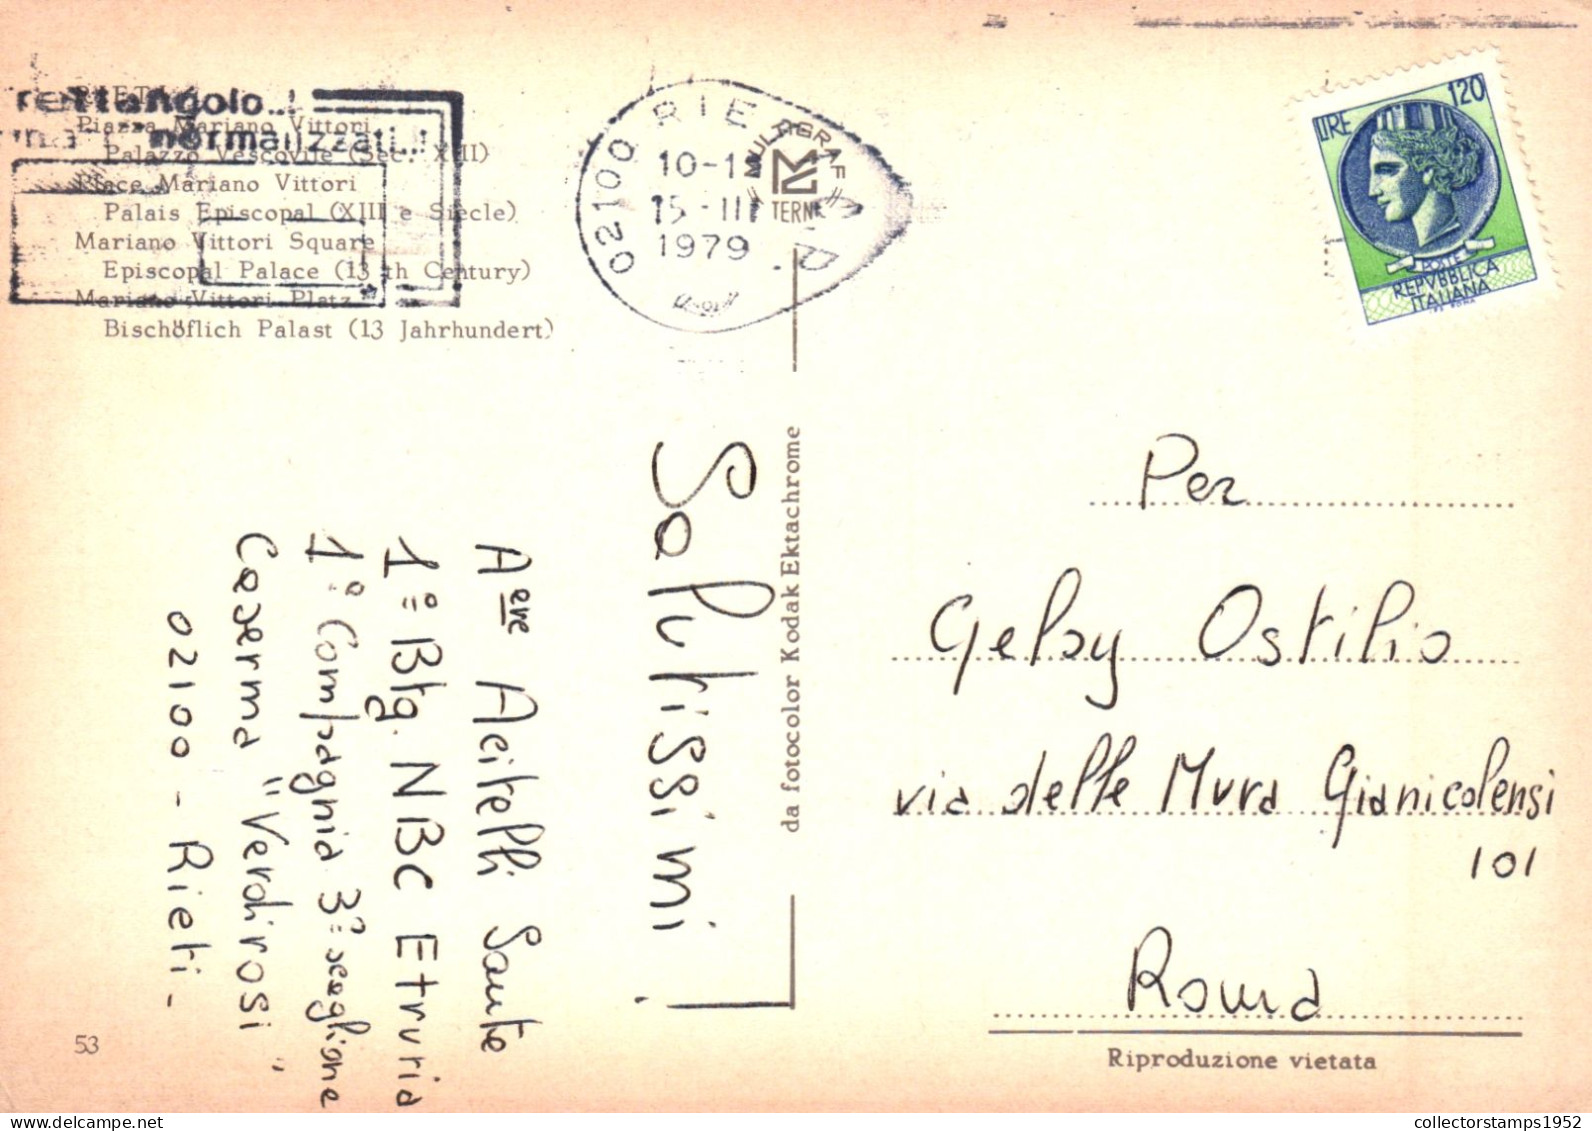 rettangolo...!
normalizzati..!
Piazza Mariano Vittori
Palazzo Vescovile (Sec. XIII)
Place Mariano Vittori
Palais Episcopal (XIII e Siècle)
Mariano Vittori Square
Episcopal Palace (13 th Century)
Mariano Vittori Platz
Bischöflich Palast (13 Jahrhundert)
02100 RIETI
10-1
15-III
1979
MULTIGRAF
TERNI
LIRE 120
POSTE
REPVBBLICA
ITALIANA
Salutissimi!
Aere Acitelli Sante
1° Btg. NBC Etruria
1° Compagnia 3° sesglione
Caserma "Verdirosi"
02100 - Rieti -
da fotocolor Kodak Ektachrome
Per
Gelsy Ostilio
via delle Mura Gianicolensi
101
Roma
Riproduzione vietata
53
collectorstamps1952